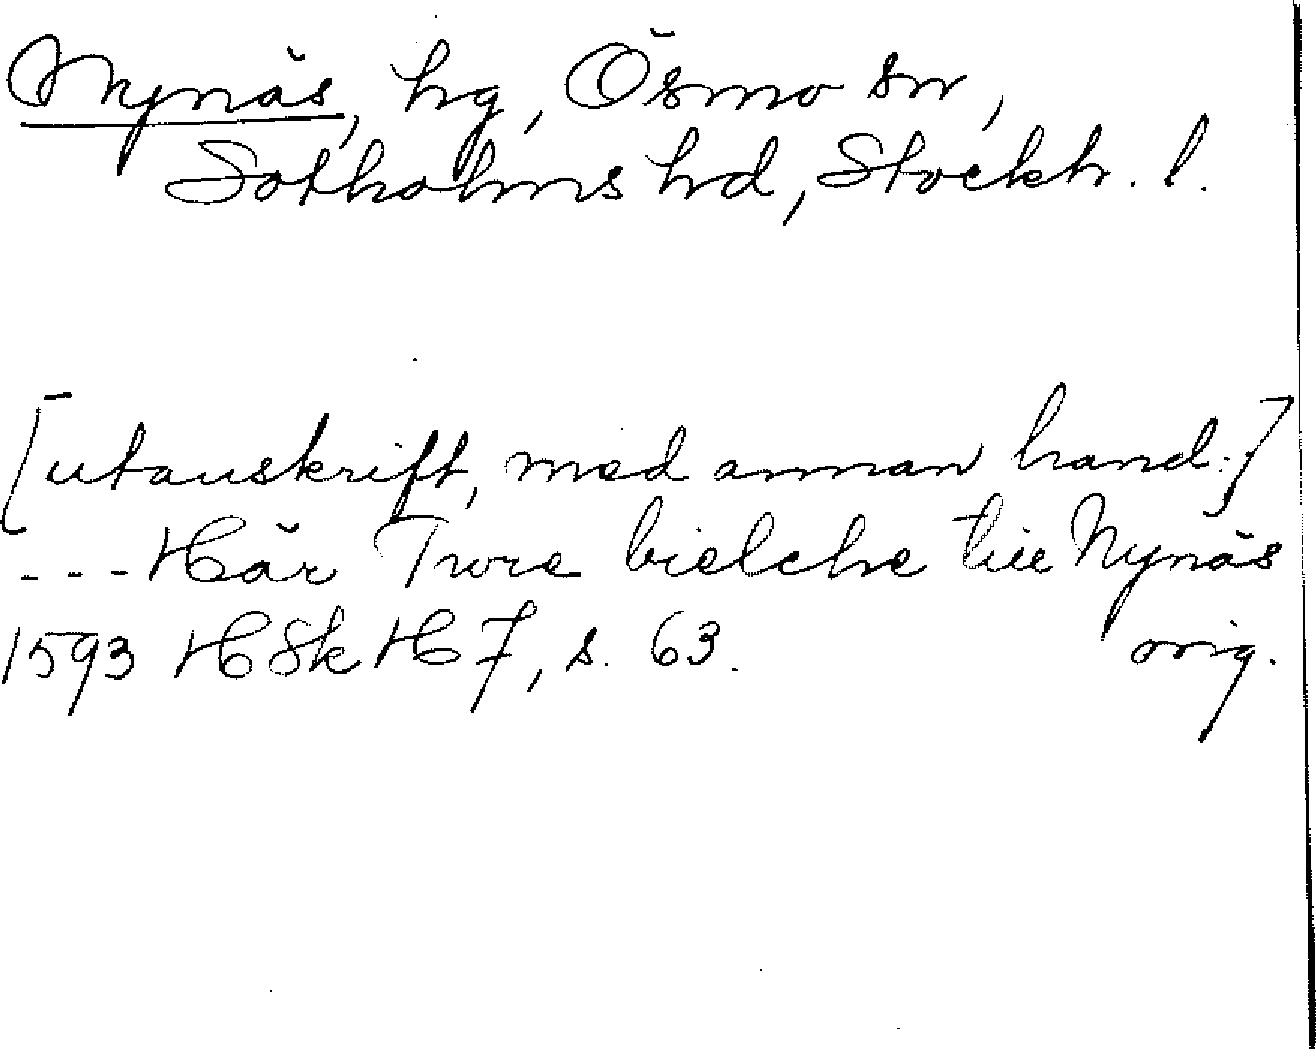 Nynäs, hg, Ösmo sn,
Sotholms hd, Stockh. l.
[utanskrift, med annan hand:]
--- Här Twre bielche till Nynäs
1593 HSkH 7, s. 63. orig.